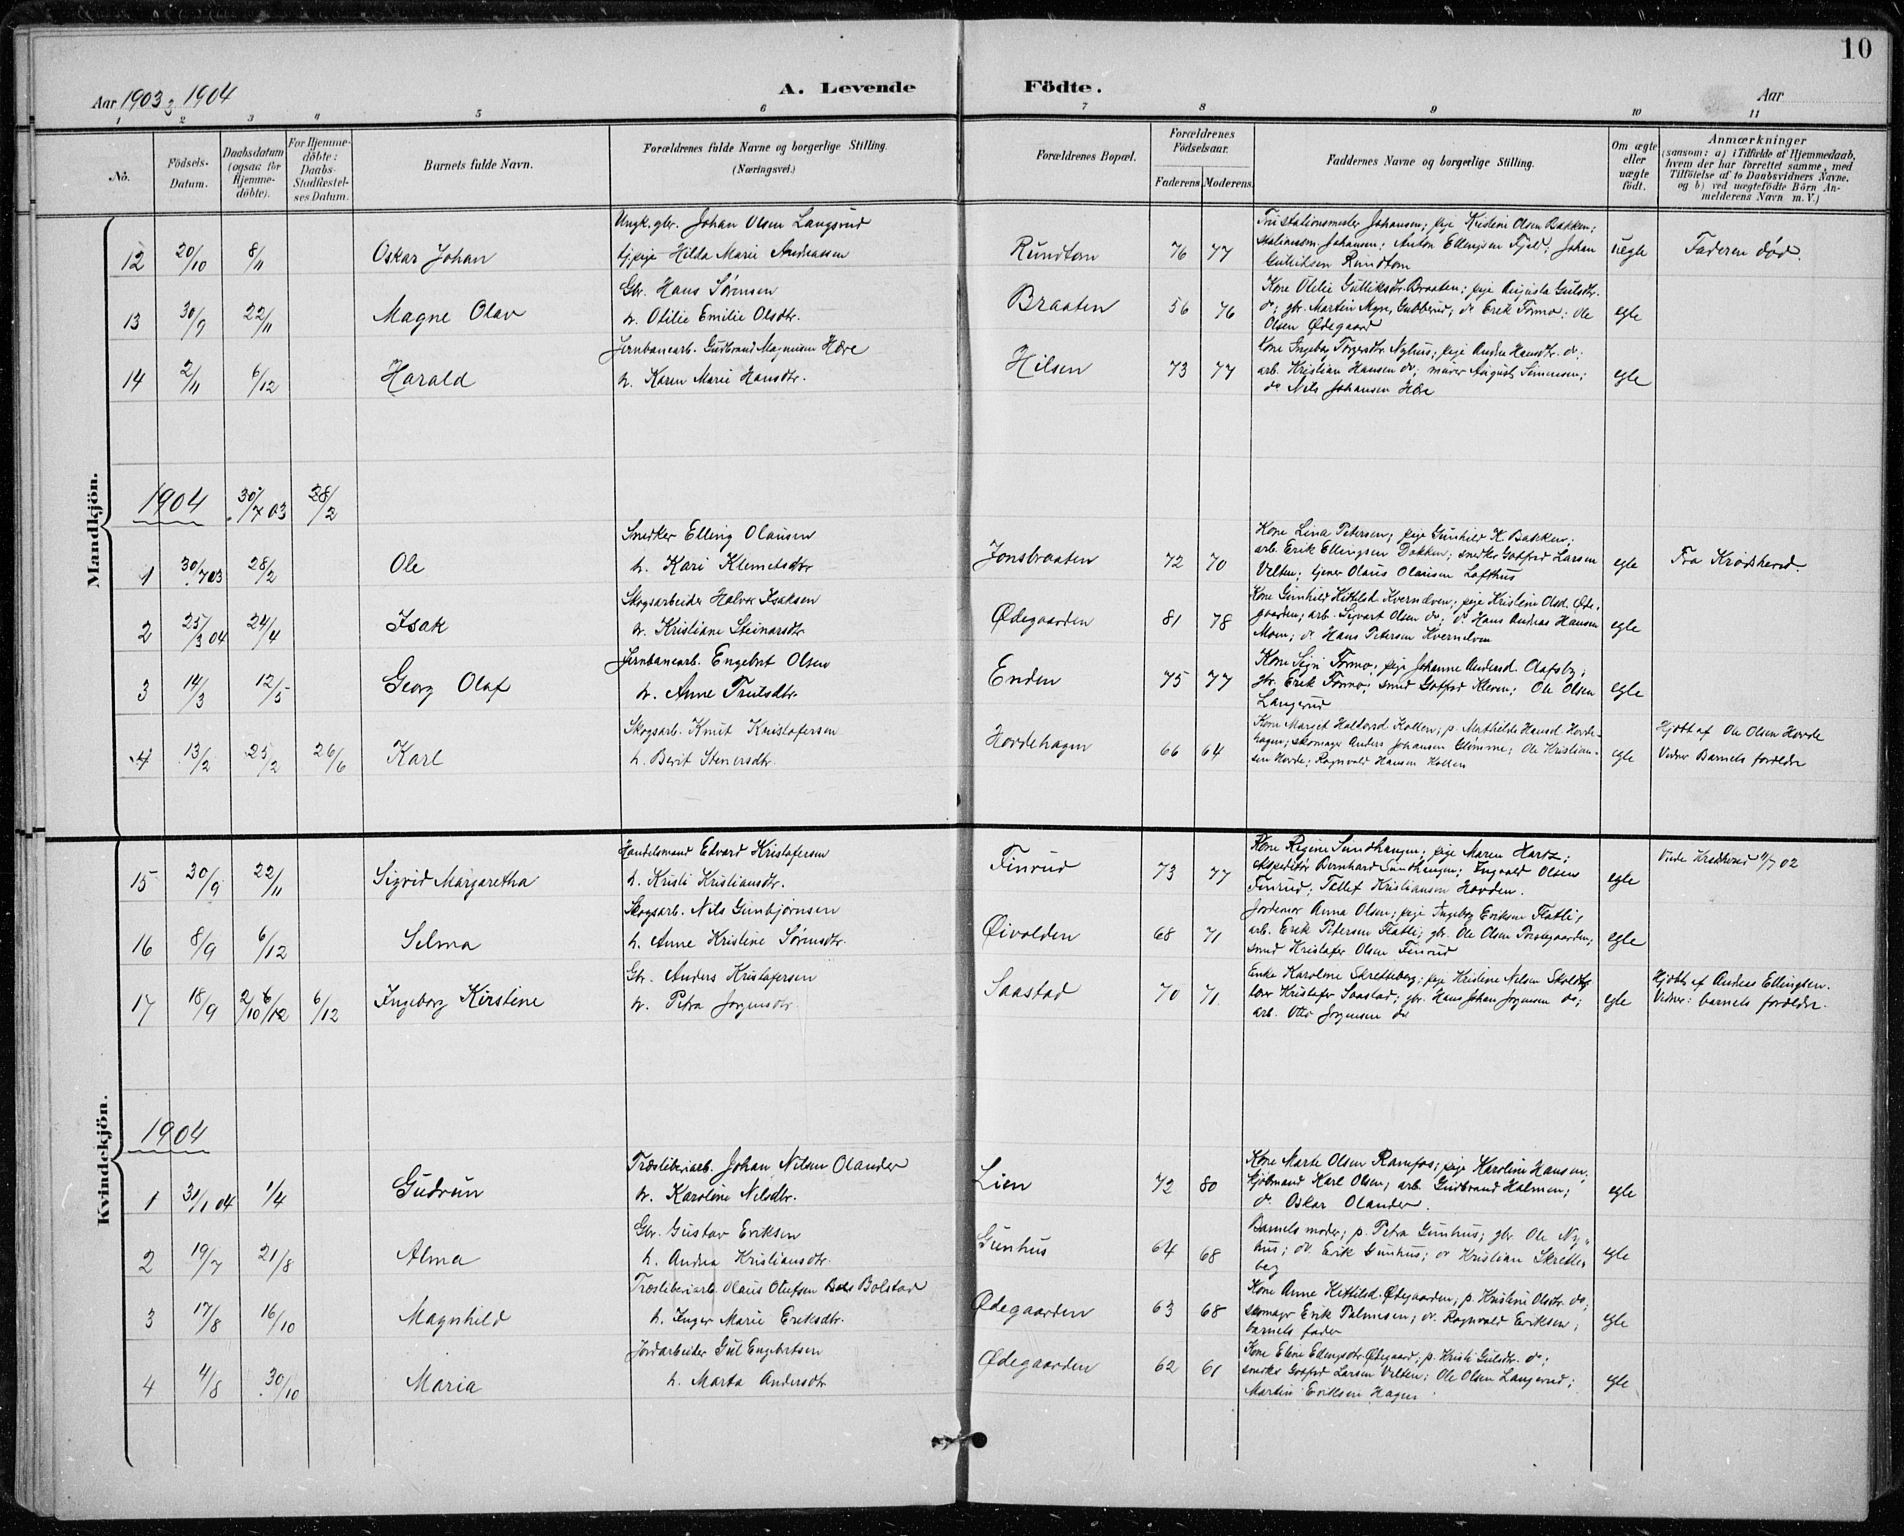 10
Aar 1903 & 1904
A. Levende
Födte.
Aar
1 2 3 4 5 6 7 8 9 10 11
No.
Födsels-Datum.
Daabsdatum (ogsaa for Hjemmedöbte).
For Hjemmedöbte: Daabs-Stadfæstelses Datum.
Barnets fulde Navn.
Forældrenes fulde Navne og borgerlige Stilling. (Næringsvei.)
Forældrenes Bopæl.
Forældrenes Födselsaar.
Faderens Moderens
Faddernes Navne og borgerlige Stilling.
Om ægte eller uægte födt.
Anmærkninger
(saasom: a) i Tilfælde af Hjemmedaab, hvem der har forrettet samme, med Tilföielse af to Daabsvidners Navne. og b) ved uægtefödte Börn Anmelderens Navn m. V.)
Mandkjön.
Ungk. gbr. Johan Olsen Langerud
12 20/10 8/11 Oskar Johan
pige Hilda Marie Andreassen
Rundtom 76 77
Johansen; pige Kristine Olsen Bakken;
Johansen; Anton Ellingsen Fjeld; Johan
Gulliksen Rundtom
uegte Faderen død.
Gbr. Hans Sörensen
13 30/9 22/11 Magne Olav
h. Otilie Emilie Olsdtr.
Braaten 56 76
Kone Otilie Gulliksdtr. Braaten; pige Augusta Gulsdtr.
do; gbr. Martin Myre, Gubberud; do Erik Formo; Ole
Olsen Ødegaard
egte
Jernbanearb. Gudbrand Magnusen Hære
14 2/11 6/12 Harald
h. Karen Marie Hansdtr.
Hilsen 73 77
Kone Ingeborg Torgersdtr. Nyhus; pige Andrea Hansdtr. do;
arb. Kristian Hansen do; murer August Simensen;
do Nils Johansen Hære
egte
1904 30/7 03 28/2
Snedker Elling Olausen
1 30/7 03 28/2 Ole
h. Kari Klemetsdtr
Jonsbraaten 72 70
Kone Lina Petersen; pige Gunhild K. Bakken;
arb. Erik Ellingsen Dokken; snedker Gotfred Larsen
Velten; tjener Olaus Olausen Lofthus
egte Fra Krødsherred.
Skogsarbeider Halvor Isaksen
2 25/3 04 24/4 Isak
h. Kristiane Steinarsdtr
Ødegaarden 81 78
Kone Gunhild Kittilsd. Kvernelven; pige Kristine Olsd. Øde-
gaarden; arb. Sigvart Olsen do; do Hans Andreas Hansen
Moen; do Hans Petersen Kvernelven
egte
Jernbanearb. Engebret Olsen
3 14/3 12/5 Georg Olaf
h. Anne Trulsdtr.
Enden 75 77
Kone Sigri Formo; pige Johanne Andersd. Olafsby;
gbr. Erik Formo; smed Gotfred Kleven; Ole Olsen
Langerud
egte
Skogsarb. Knut Kristofersen
4 13/2 25/2 26/6 Karl
h. Berit Stenersdtr.
Hovdehagen 66 64
Kone Marget Haldorsd. Kolken; p. Mathilde Hansd. Hovde-
hagen; skomager Anders Johansen Glømme; Ole Kristian-
sen Hovde; Ragnvald Hansen Kolken
egte
Hjdbt af Ole Olsen Hovde
Vidner Barnets foreldre
Kvindekjön.
Handelsmand Edvard Kristofersen
15 30/9 22/11 Sigrid Margaretha
h. Kristi Kristiansdtr.
Finrud 73 77
Kone Regine Sundhaugen; pige Maren Hartz;
ekspeditør Bernhard Sundhaugen; Ingvald Olsen
Finrud; Tellef Kristiansen Hovden.
egte
Skogsarb. Nils Gunbjørnsen
16 8/9 6/12 Selma
h. Anne Kristine Sørensdtr.
Øivolden 68 71
Jordemor Anna Olsen; pige Ingeborg Eriksen Flatli;
arb. Erik Petersen Flatli; gbr. Ole Olsen
smed Kristofer Olsen Finrud
egte
Gbr. Anders Kristofersen
17 18/9 2/10 6/12 6/12 Ingeborg Kirstine
h. Petra Jørgensdtr.
Saastad 70 71.
Enke Karoline Skretteberg; pige Kristine Nilsen
Kristofer Saastad; gbr. Hans Johan Jørgensen do;
arb. Otto Jørgensen do
egte
Hjdbt. af Anders Ellingsen.
Vidner: barnets foreldre.
1904
Træsliberiarb. Johan Nilsen Olander
1 31/1 04 1/4 Gudrun
h. Karoline Nilsdtr.
Lien 72 80
Kone Marte Olsen Ramfos; pige Karoline Hansen;
kjøbmand Karl Olsen; arb. Gudbrand Holmen;
do Oskar Olander.
egte
Gbr. Gustav Eriksen
2 19/7 21/8 Alma
h. Andrea Kristiansdtr.
Gunhus 64 68
Barnets moder; p. Petra Gunhus; gbr. Ole Ny-
hus; do. Erik Gunhus; do Kristian Skrette-
berg
egte
Træsliberiarb. Olaus Olufsen Bolstad
3 17/8 16/10 Magnhild
h. Inger Marie Eriksdtr.
Ødegaarden 63 68
Kone Anne Kittilsd. Ødegaarden; p. Kristine Olsdtr. do;
skomager Erik Palmesen; do. Ragnvald Eriksen;
barnets fader
egte
Jordarbeider Gul Engebretsen
4 4/8 30/10 Maria
h. Marta Andersdtr
Ødegaarden 62 61
Kone Eline Ellingsdtr. Ødegaard; p. Kristi Gulsdtr. do;
snedker Gotfred Larsen Velten; Ole Olsen Langerud;
Martin Eriksen Hagen
egte